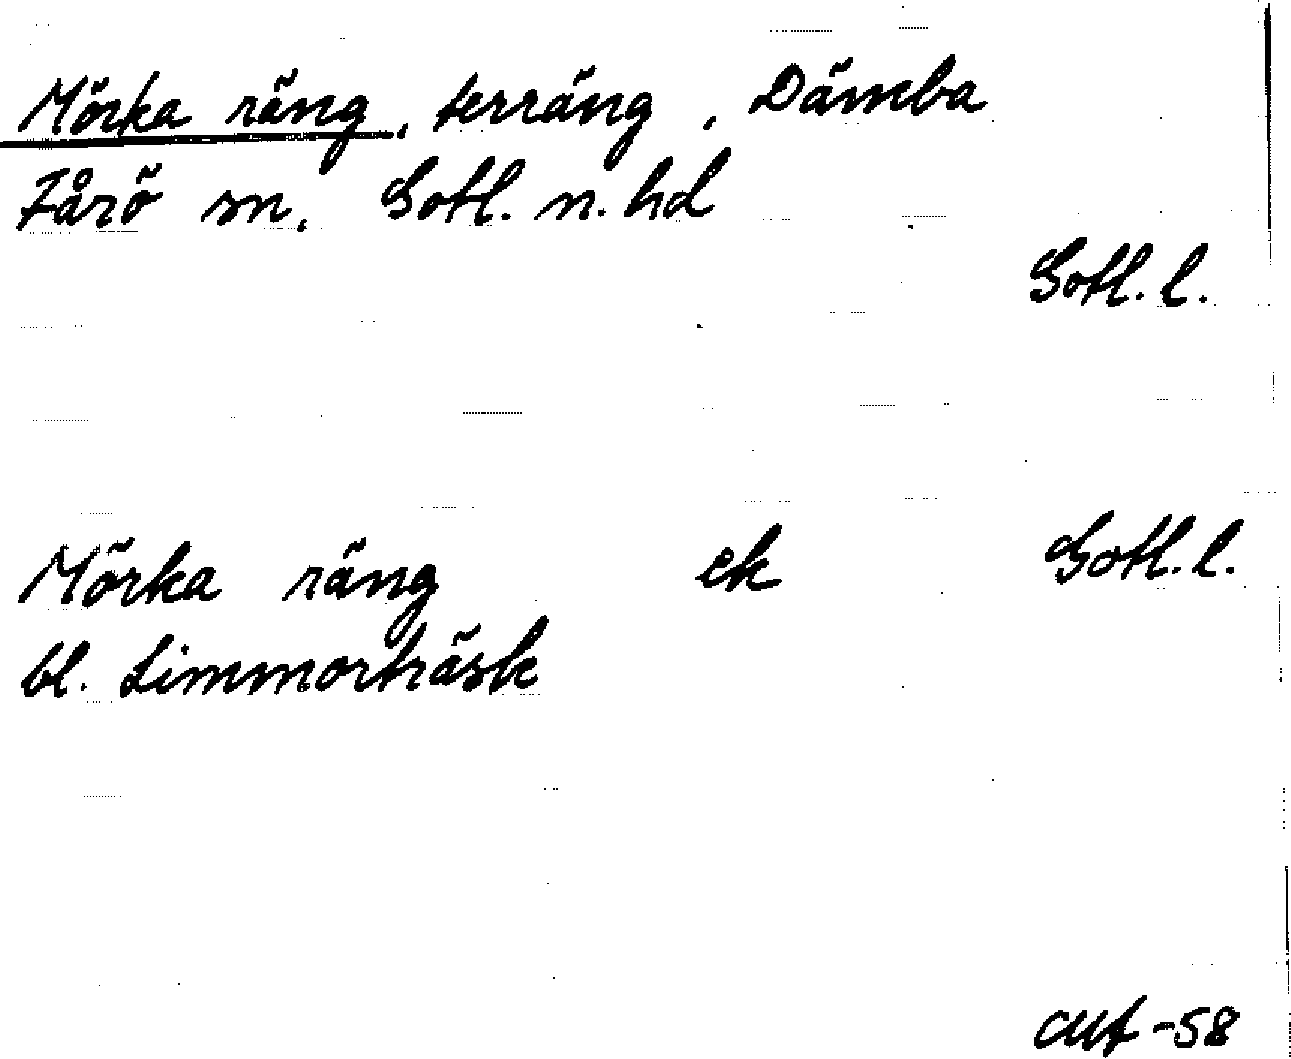 Mörka räng, terräng, Dämba
Fårö sn, Gotl. n. hd
Gotl. l.
Mörka räng ek Gotl. l.
bl. Limmorträsk
-58